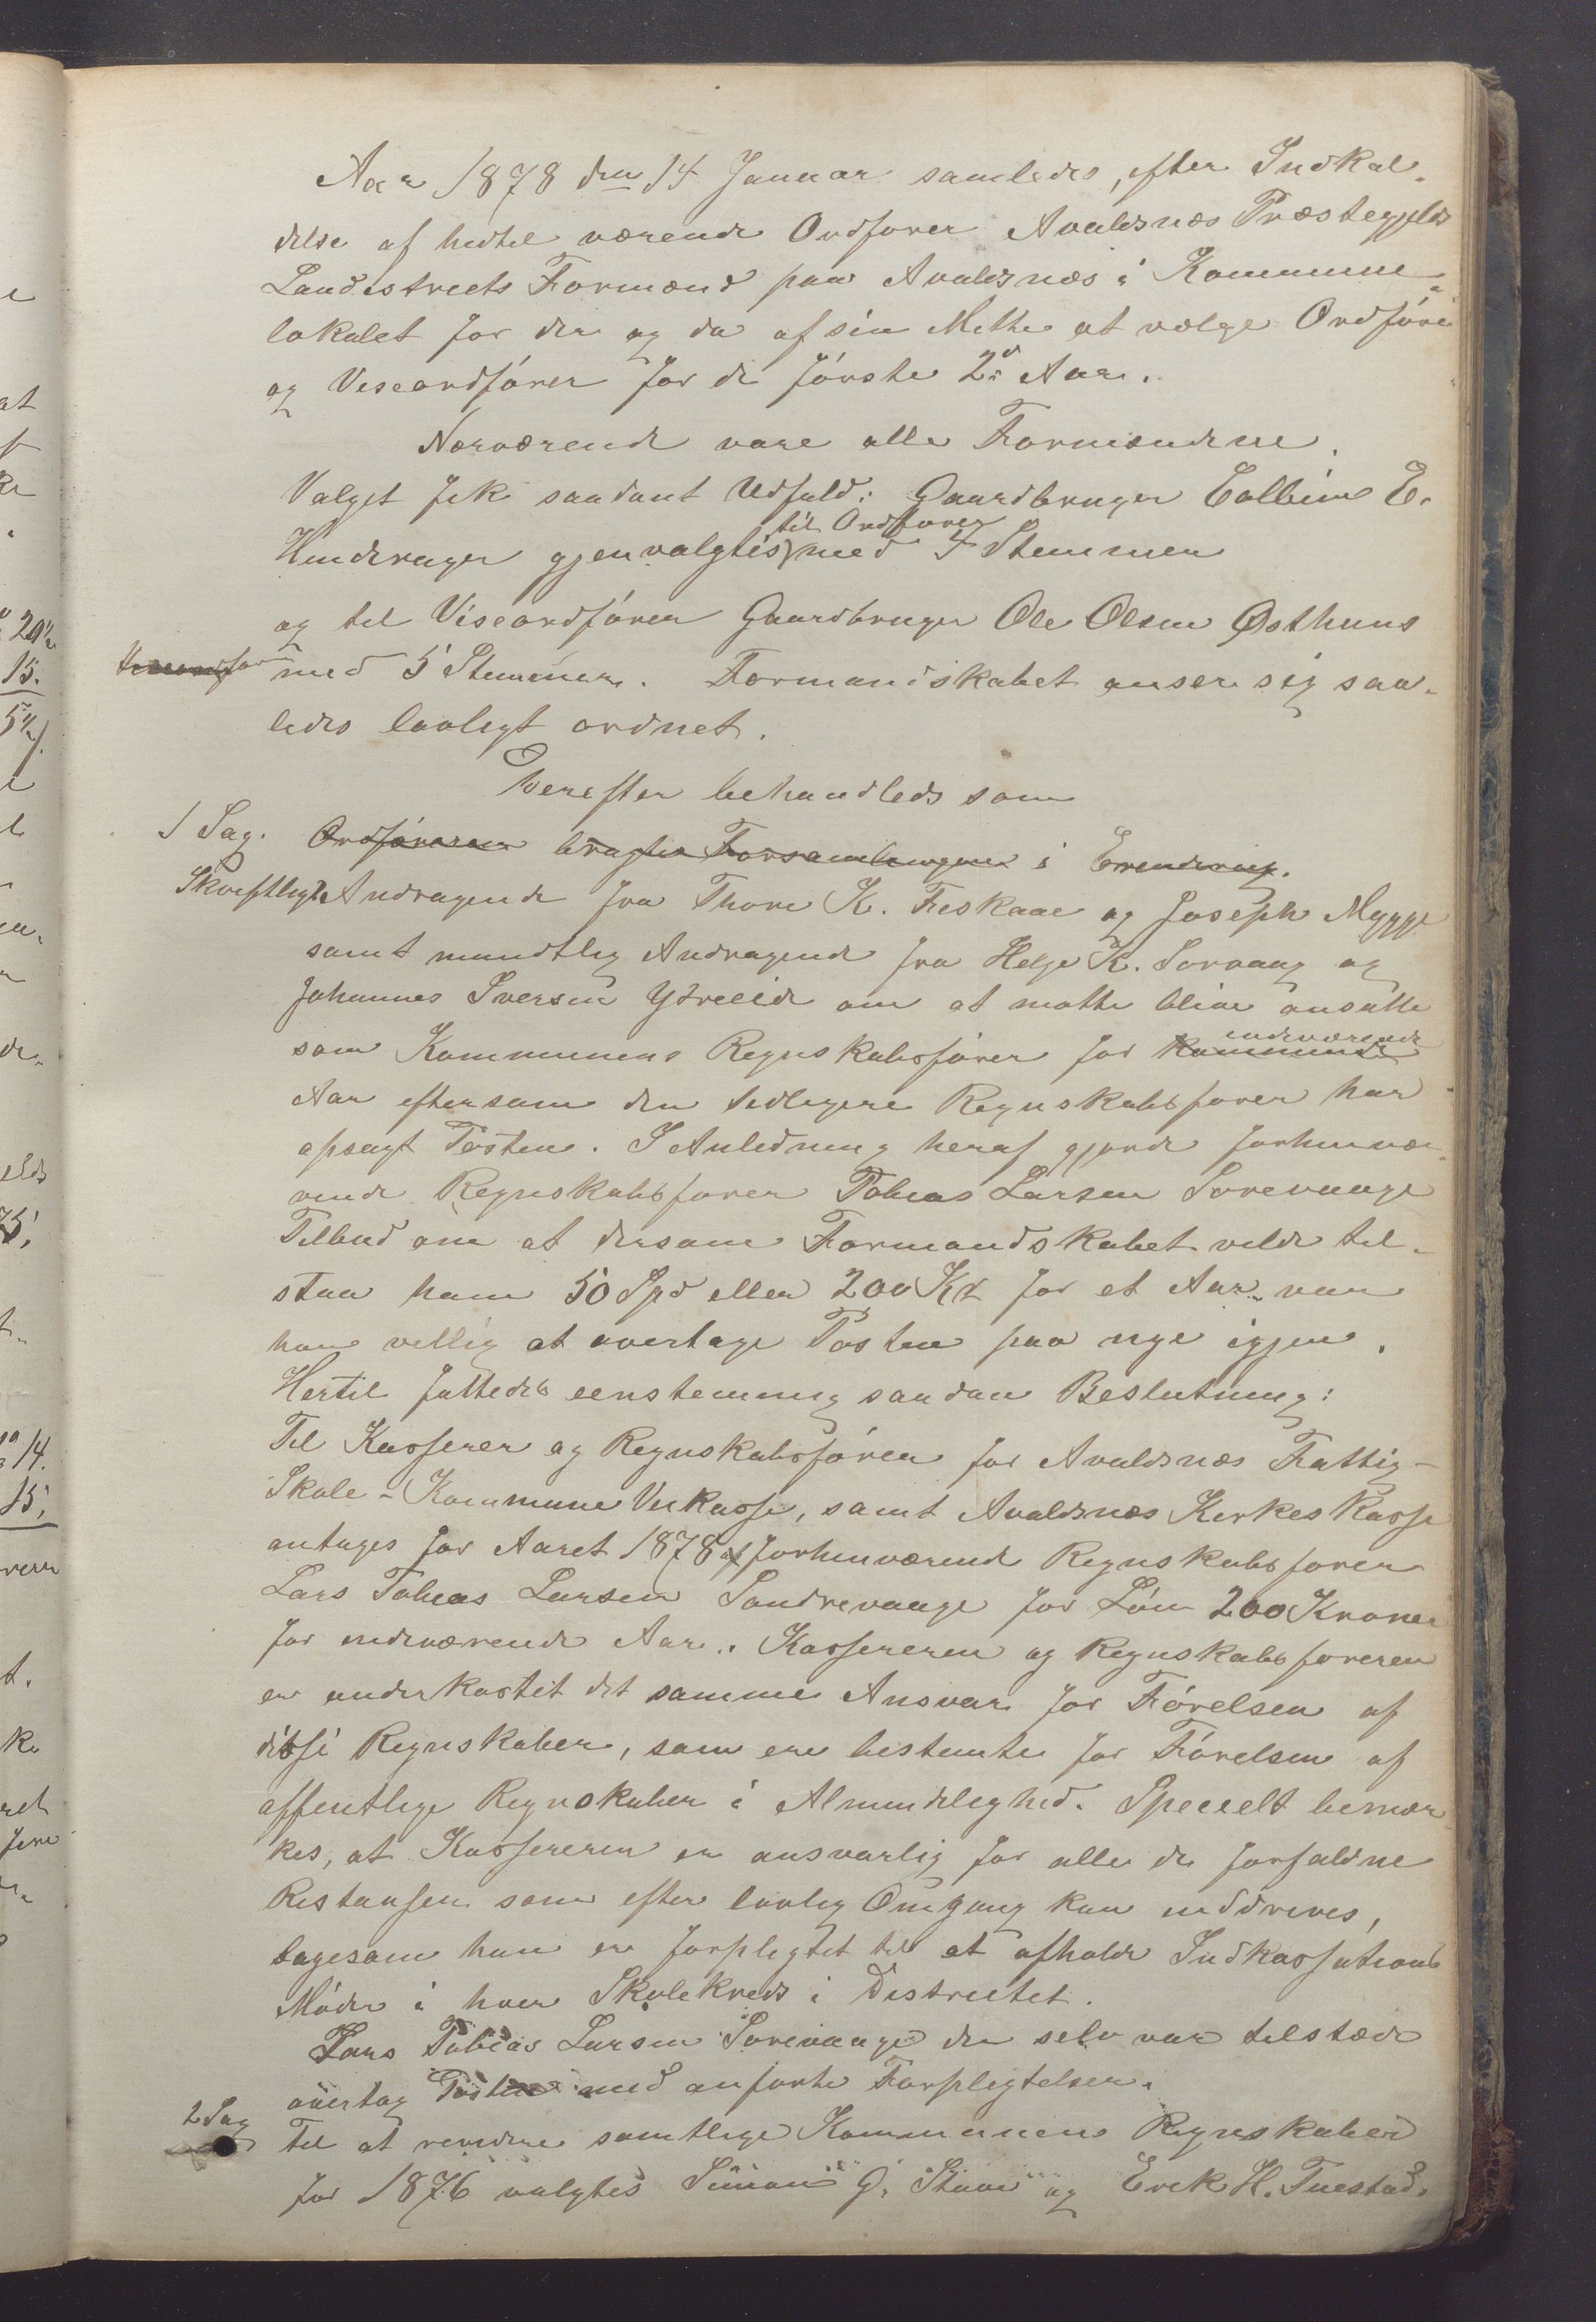 Aar 1878 den 14 Januar samledes, efter Indkal-
delse af hidtil værende Ordfører Avaldsnæs Præstegjelds
Landistricts Formænd paa Avaldsnæs i Kommune-
lokalet for der og da af sin Mitte at vælge Ordføre
og Viseordfører for de første 2de Aar.
Nærværende vare alle Formændene.
Valget fik saadant Udfald: Gaardbruger Eolbein E.
til Ordfører
Hinderager gjenvalgtes med 4 Stemmer
og til Viseordfører Gaardbruger Ole Olsen Østhuus
Viseordfør med 5 Stemmer. Formandskabet anser sig saa-
ledes lovligt ordnet.
Derefter behandleds som
1 Sag. Ordføreren bragte Forsamlingen i Erendring.
Skriftligt Andragende fra Thore K. Fiskaae og Joseph Mygge
samt mundtlig Andragende fra Helge K. Sorvaag og
Johannes Iversen Ytreeide om at motte blive ansatte
som Kommunens Regnskabsfører for Kommunde
indeværende
Aar eftersom den tidligere Regnskabsfører har
opsagt Posten. I Anledning heraf gjorde forhenvæ-
rende Regnskabsfører Tobias Larsen Sorevaage
Tilbud om at dersom Formandskabet vilde til-
staa ham 50 Spd eller 200 Kr for et Aar var
han villig at overtage Posten paa nye igjen.
Hertil fattedes eenstemmig saadan Beslutning:
Til Kasserer og Regnskabsfører for Avaldsnæs Fattig-
Skole- Kommune Veikasse, samt Avaldsnæs Kirkes Kasse
antages for Aaret 1878 af forhenværende Regnskabsfører
Lars Tobias Larsen Søndrevaage for Løn 200 Kroner
for indeværende Aar. Kassereren og Regnskabsføreren
er underkastet det samme Ansvar for Førelsen af
disse Regnskaber, som ere bestemte for Førelsen af
offentlige Regnskaber i Almindelighed. Specielt bemær
kes, at Kassereren er ansvarlig for alle de forfaldne
Restanser som efter lovlig Omgang kan inddrives,
ligesom han er forpligtet til at afholde Indkassations
Møder i hver Skolekreds i Districtet.
Lars Tobias Larsen Sorevaage der selv var tilstæde
overtog Posten med anførte Forpligtelser.
2 Sag
Til at revidere samtlige Kommunens Regnskaber
for 1876 valgtes Simon G. Stave og Erik H. Tuestad.